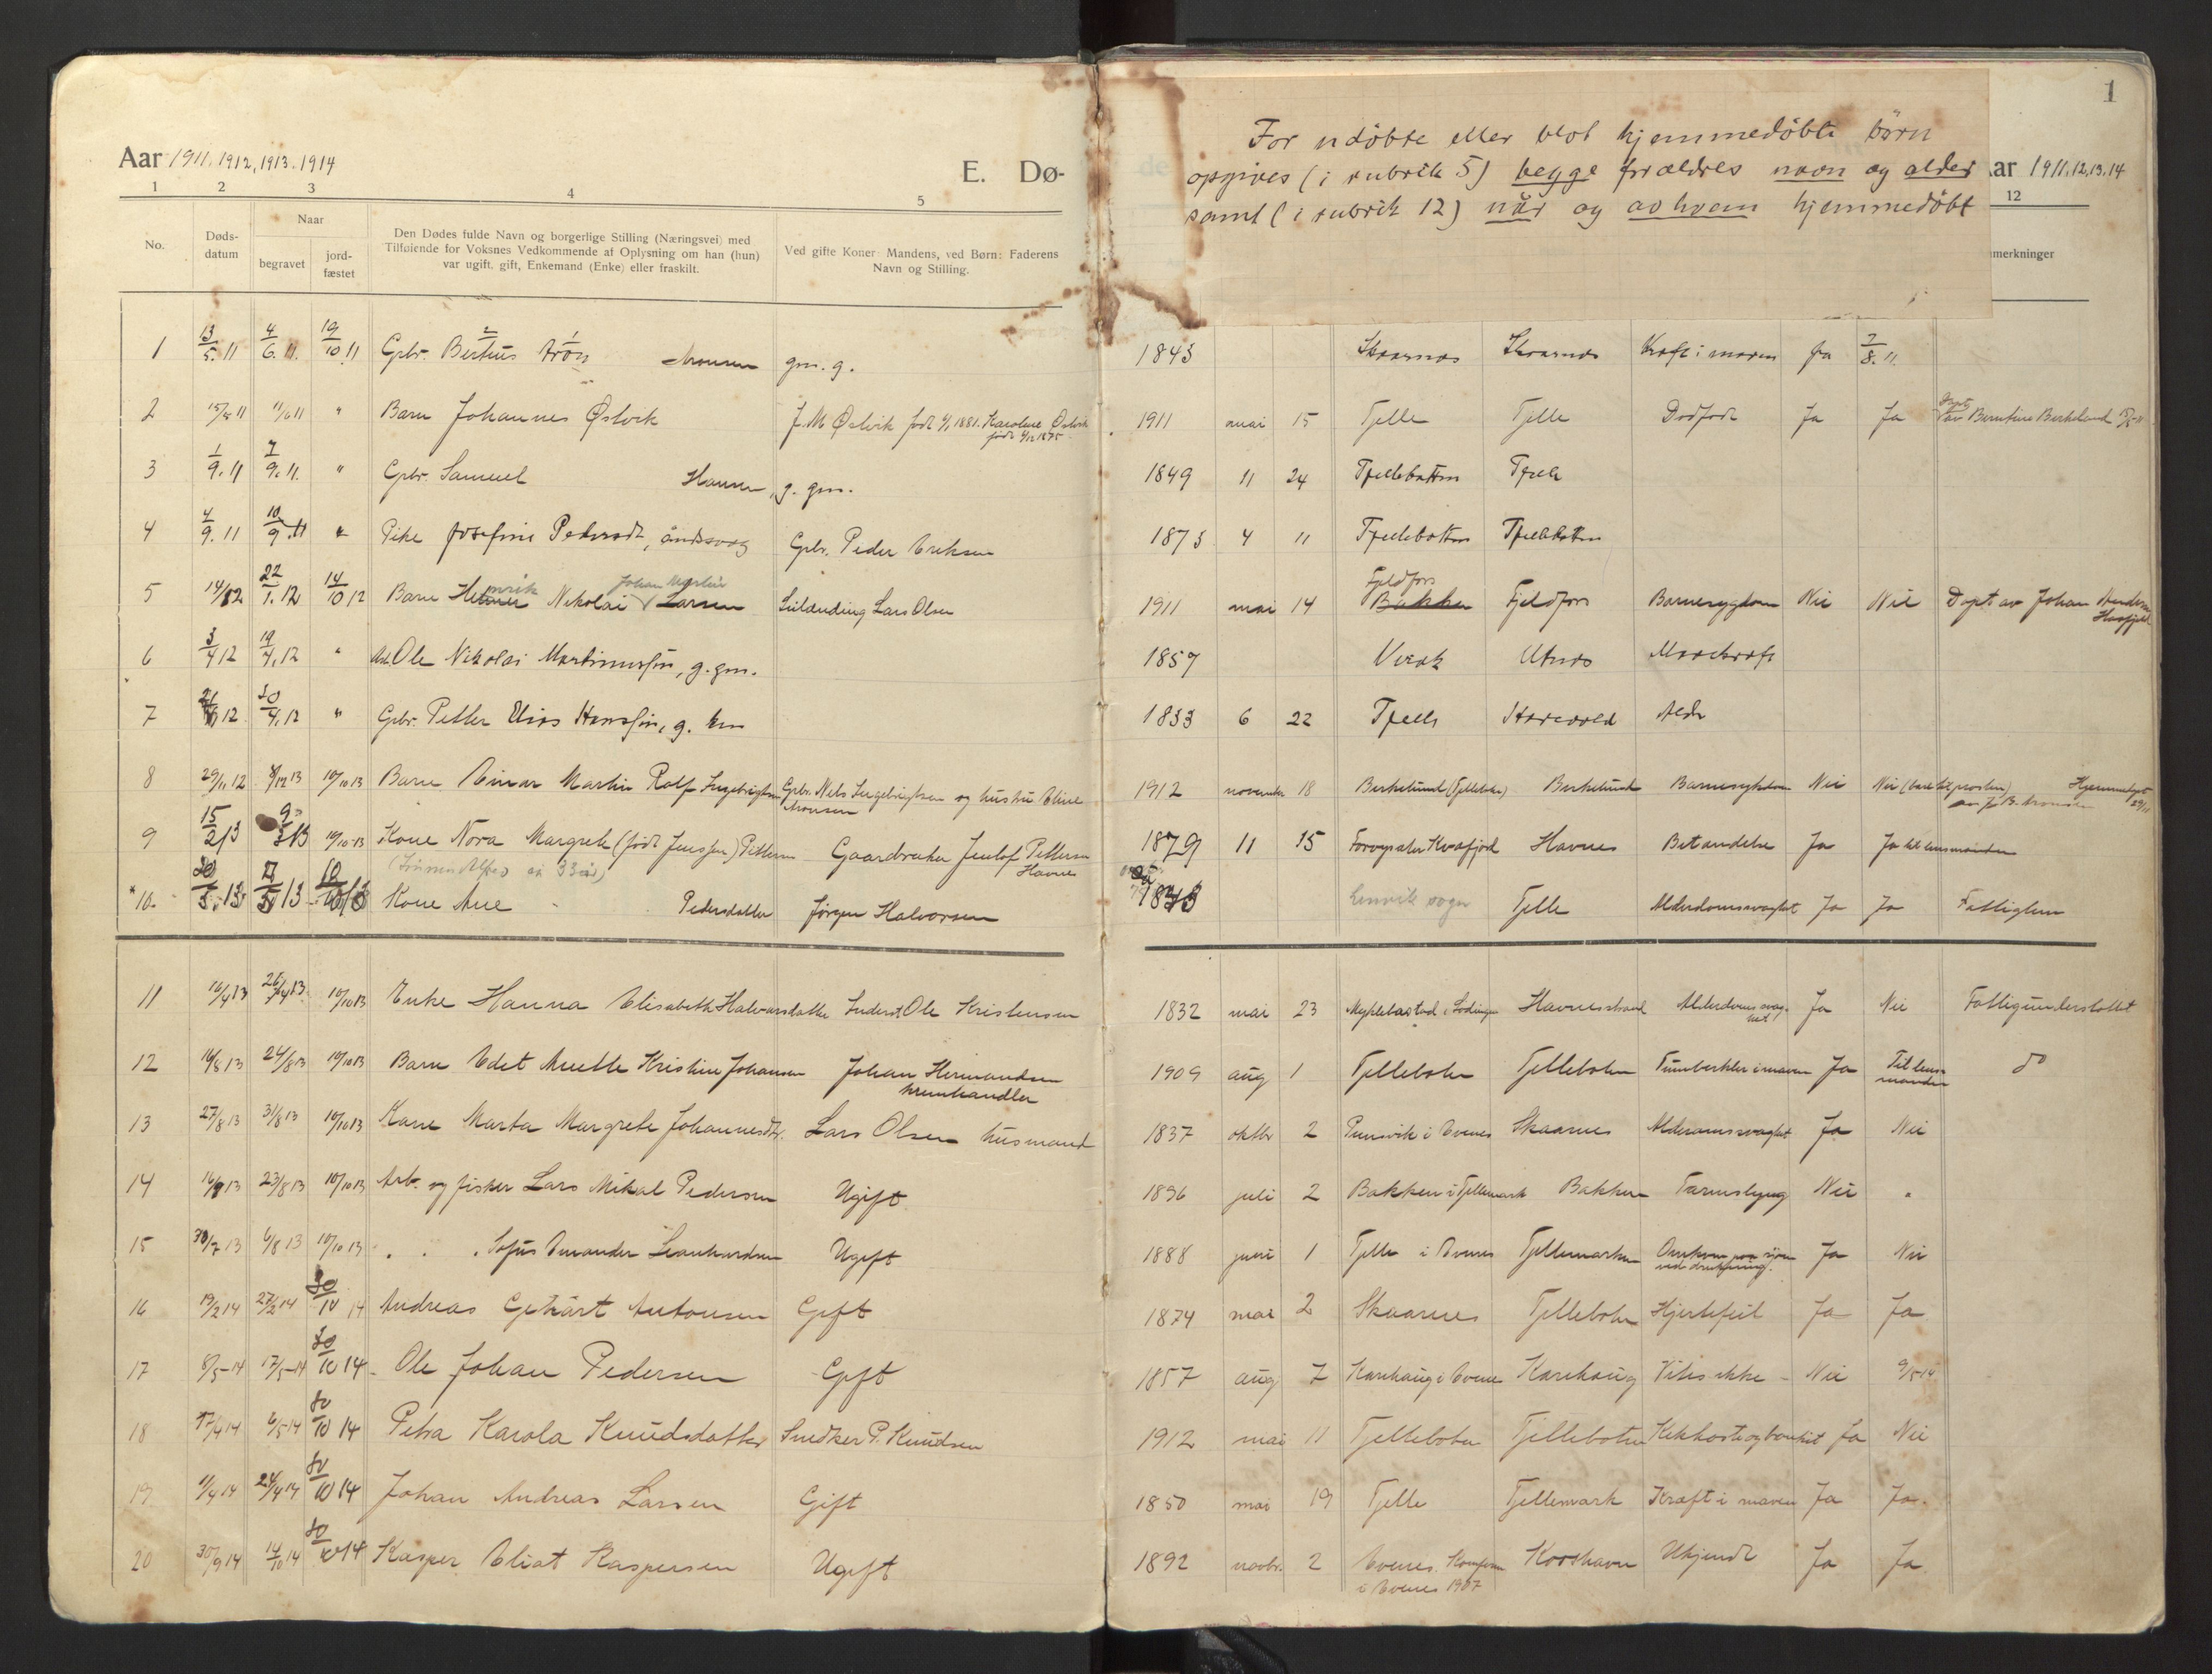 Aar 1911, 1912, 1913. 1914
E. Dø-
1 2 3 4 5
No.
Døds-
datum
Naar
begravet
jord-
fæstet
Den Dødes fulde Navn og borgerlige Stilling (Næringsvei) med
Tilføiende for Voksnes Vedkommende af Oplysning om han (hun)
var ugift, gift, Enkemand (Enke) eller fraskilt.
Ved gifte Koner: Mandens, ved Børn: Faderens
Navn og Stilling.
1
For udöbte eller blot hjemmedöbte börn
opgives (i rubrik 5) begge forældres navn og alder
samt (i rubrik 12) når og av hvem hjemmedöbt
aar 1911,12,13,14
12
nmerkninger
1 13/5.11 4/6.11. 19/10 11 Gbr. Aronsen gm. g. 1843 Skaarnes Skaarnes Kræft i maven Ja 7/8.11.
2 15/5 11 11/6 11 " Barn Johannes Østvik J. M. Østvik født 1881. Karoline Østvik 1911 mai 15 Tjelle Tjelle Dødfødt Ja Ja Berntine Berkeland
3 1/9.11 7/9.11. " Gbr. Samuel Hansen, g. gm. 1849 11 24 Tjellebotten Tjelle
4 4/9.11 10/9.11 " Pike Josefine Pedersdt, åndssvag Gbr. Peder Eriksen 1873 4 11 Tjellebotten Tjellebotten
5 22/1.12 14/10 12 Barn Henrik Nikolai Johan Martin Larsen Lars Olsen 1911 mai 14 Fjeldfors Bakken Fjeldfors Barnesygdom Nei Nei Døpt av Johan
6 3/4 12 19/4.12 " Ole Nikolai Martinussen, g. gm. 1857 Utnes Mavekræft
7 30/4.12 " Gbr. Petter Elias Hansen, g. 1833 6 22 Tjelle Alder
8 29/11 12 8/12 13 10/10 13 Barn Einar Martin Rolf Ingebrigtsen Gbr. Nels Ingebrigtsen og hustru Eline Aronsen 1912 november 18 Berkelund (Tjellebotn) Berkelund Barnesykdom Nei Nei Hjemmedøpt 29/11
9 15/2 13 9/3 13 10/10-13 Kone Nora Margrete (født Jenssen) Pettersen Gaardbruker Jentof Pettersen Havnes 1879 11 15 Kvæfjord Havnes Betændelse Ja Ja til lensmanden
10. 13 13 Kone Ane Pedersdatter Jørgen Halvorsen 1843 Lenvik sogn Tjelle Alderdomssvaghet Ja Ja Fattiglem
11 16/4 13 26/4 13 10/10 13 Enke Hanna Elisabeth Halvorsdatter Inderst Ole Kristensen 1832 mai 23 Myklebostad i Lødingen Havnesstrand Alderdomssvaghet Ja Nei Fattigunderstøttet
12 16/8 13 24/8 13 10/10 13 Barn Edet Anette Kristine Johansen Johan Hermandsen kremhandler 1909 aug 1 Tjellebotn Tjellebotn Tuberkler i maven Ja Til lensmanden do
13 27/8 13 31/8 13 10/10 13 Kone Marta Margrete Johannesdtr. Lars Olsen husmand 1837 oktbr 2 Punsvik i Evenes Skaarnes Alderdomssvaghet Ja Nei
14 16/8 13 23/8 13 10/10 13 Arb. og fisker Lars Mikal Pedersen Ugift 1896 juli 2 Bakken i Tjellemark Bakken Tarmslyng Nei "
15 30/7 13 6/8 13 10/10 13 " " Sofus Emander Leonhardsen Ugift 1888 juni 1 Tjelle i Evenes Tjellemarken Omkom paa sjøen ved drukning. Ja Nei
16 19/2 14 27/2 14 30/10 14 Andreas Gerhart Antonsen Gift 1874 mai 2 Skaarnes Tjellebotn Hjertefeil Ja Ja
17 8/5-14 17/5-14 30/10 14 Ole Johan Pedersen Gift 1857 aug 7 Karihaug i Evenes Karihaug Vites ikke Nei 9/5 14
18 17/4 14 6/5 14 30/10 14 Petra Karola Knudsdatter Snedker P. Knudsen 1912 mai 11 Tjellebotn Tjellebotn Kikhoste og bronkit Ja Nei
19 11/4 14 24/4 14 30/10 14 Johan Andreas Larsen Gift 1850 mai 19 Tjelle Tjellemark Kræft i maven Ja Ja.
20 30/9 14 14/10 14 30/10 14 Kasper Eliat Kaspersen Ugift 1892 novbr. 2 Evenes. Konfirm i Evenes 1907 Korshavn Ukjendt Ja Ja